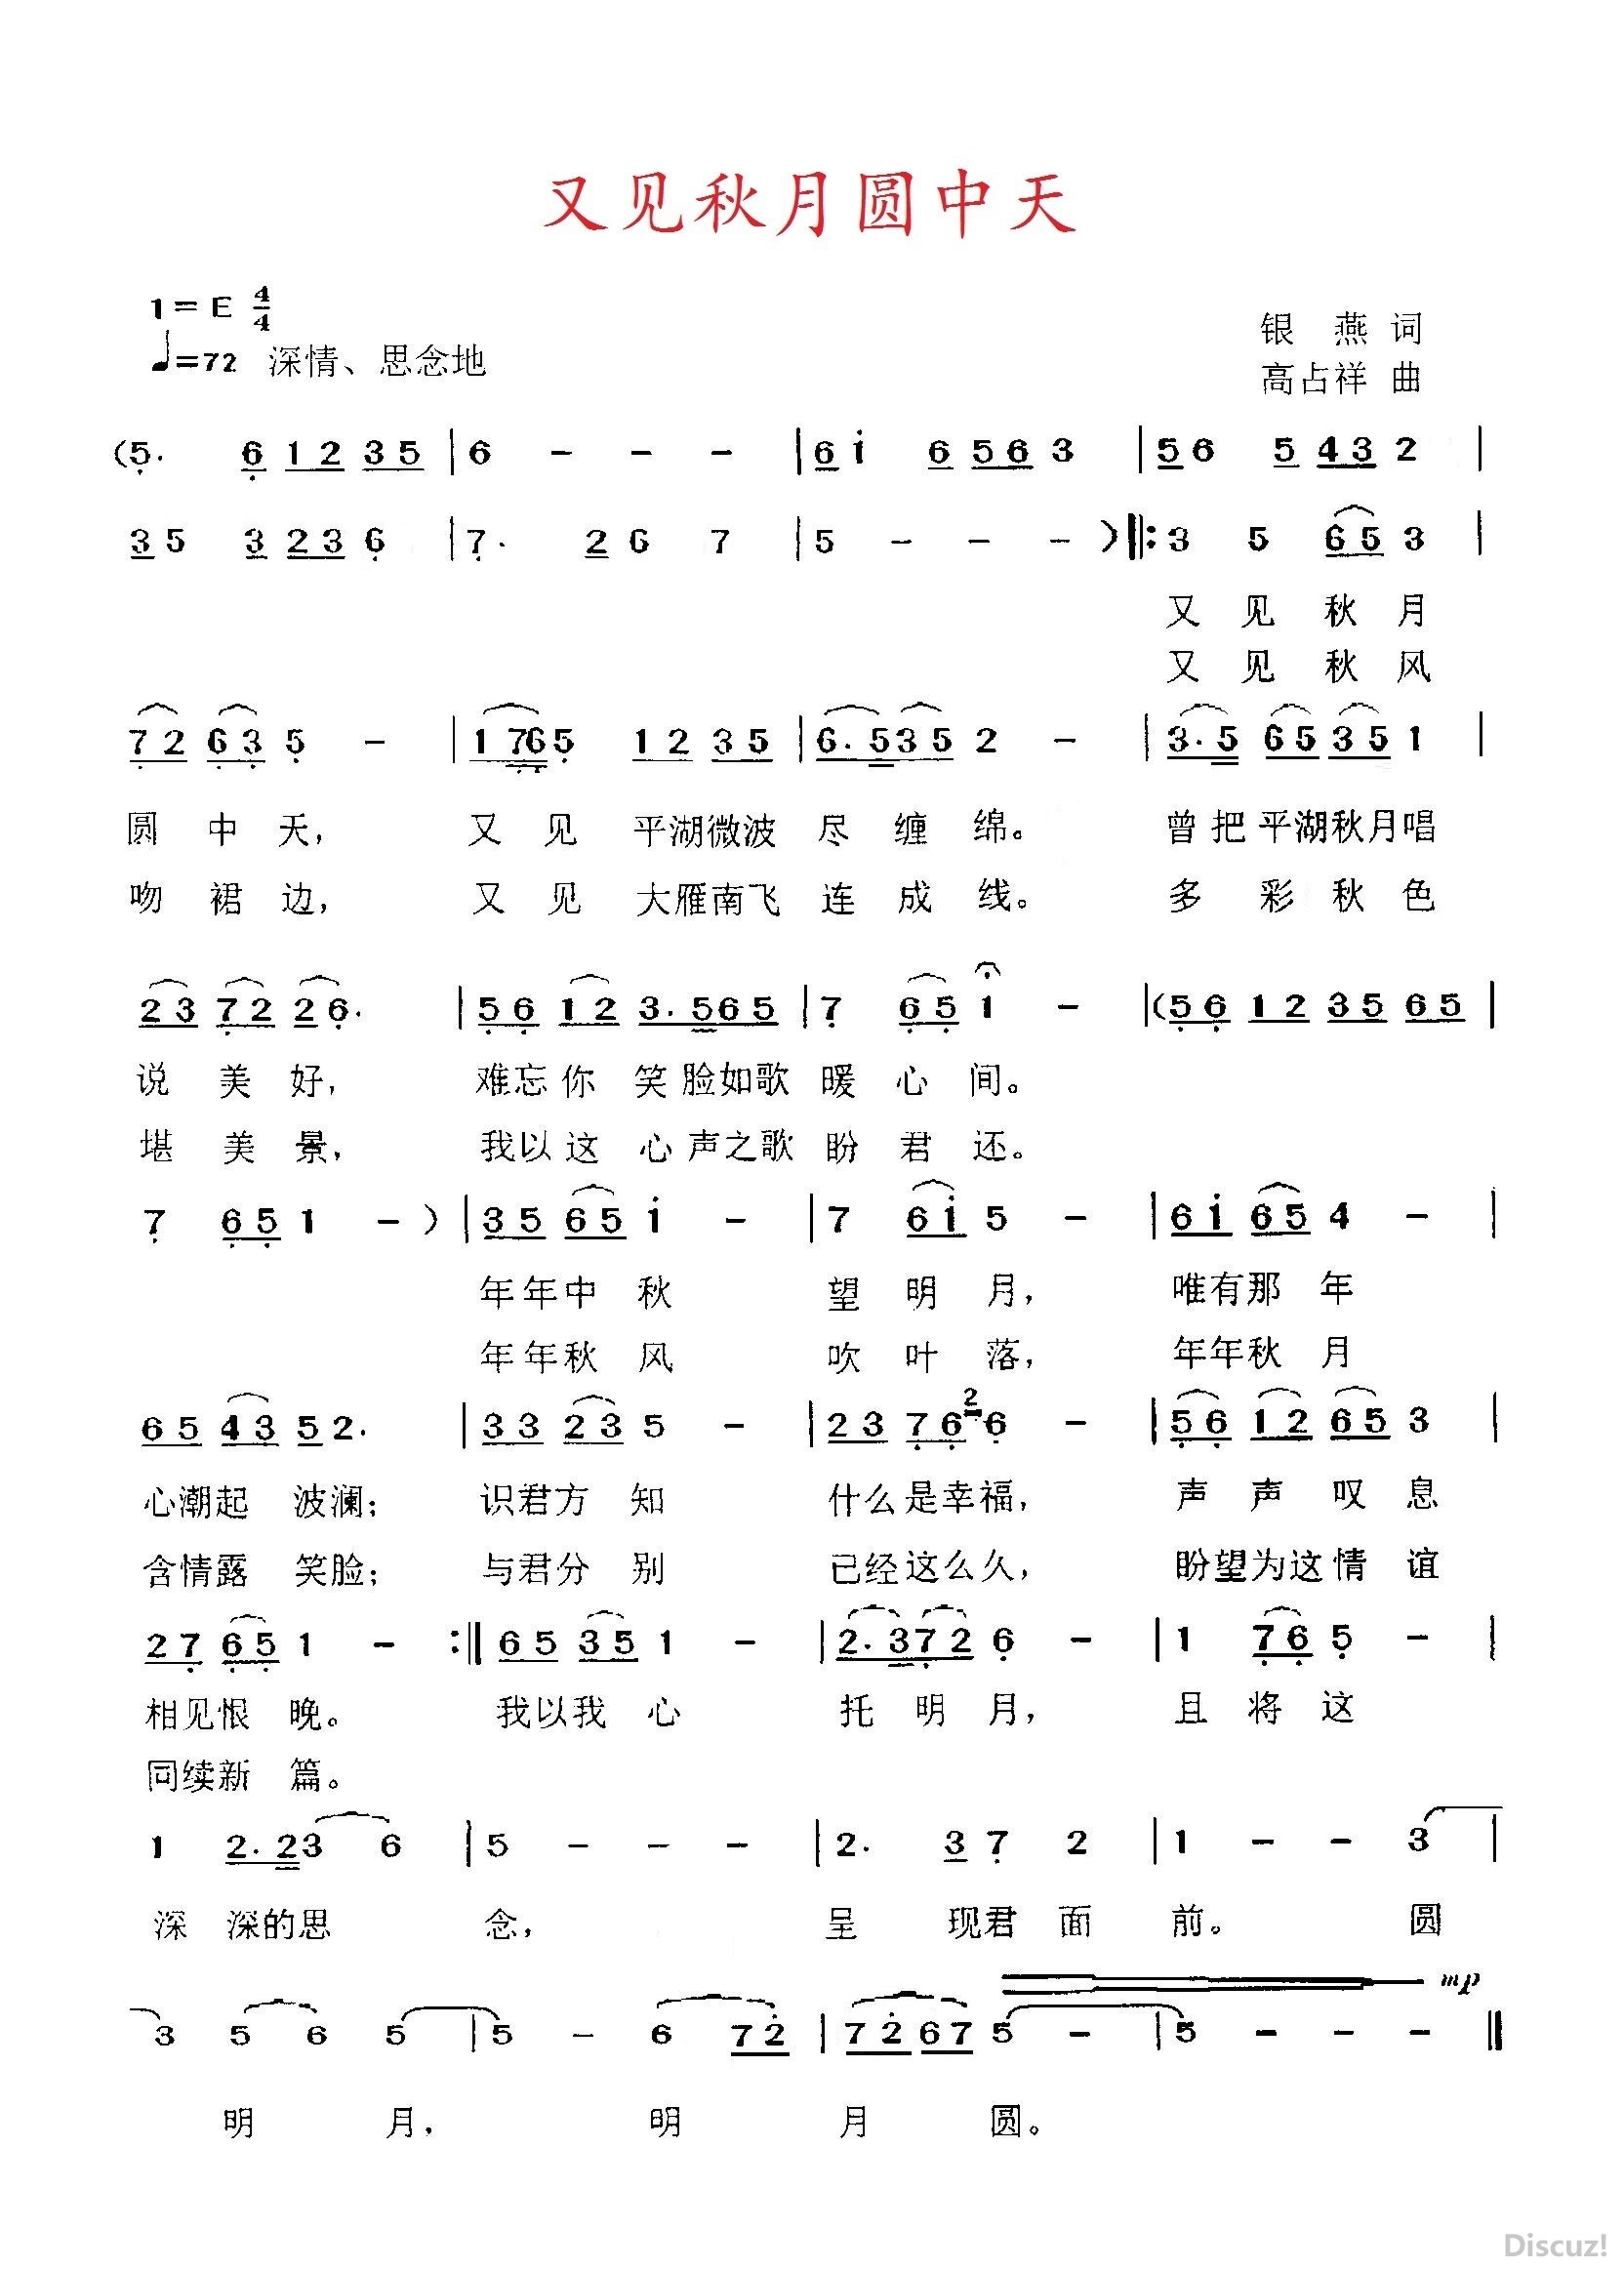 又见秋月圆中天
1=E 4/4
♩=72 深情、思念地
银 燕 词
高占祥 曲
(5̣. 6̣ 1 2 3 5 | 6 - - - | 6 i 6 5 6 3 | 5 6 5 4 3 2 |
3 5 3 2 3 6̣ | 7̣. 2 6 7 | 5 - - - ) ‖: 3 5 6 5 3 |
又 见 秋 月
又 见 秋 风
7̣ 2 6̣ 3̣ 5̣ - | 1 7̣ 6̣ 5̣ 1 2 3 5 | 6. 5 3 5 2 - | 3. 5 6 5 3 5 1 |
圆 中 天, 又 见 平湖微波 尽 缠 绵。 曾 把 平湖秋月唱
吻 裙 边, 又 见 大雁南飞 连 成 线。 多 彩 秋 色
2 3 7̣ 2 2 6̣. | 5̣ 6̣ 1 2 3. 5 6 5 | 7̣ 6̣ 5̣ 1 - | (5̣ 6̣ 1 2 3 5 6 5 |
说 美 好, 难忘你 笑 脸如歌 暖 心 间。
堪 美 景, 我以这 心 声之歌 盼 君 还。
7̣ 6̣ 5̣ 1 - ) | 3 5 6 5 i - | 7 6 i 5 - | 6 i 6 5 4 - |
年年中 秋 望 明 月, 唯有那 年
年年秋 风 吹 叶 落, 年年秋 月
6 5 4 3 5 2. | 3 3 2 3 5 - | 2 3 7̣ 6̣ 2 6̣ - | 5̣ 6̣ 1 2 6 5 3 |
心潮起 波澜; 识君方 知 什么是幸福, 声 声 叹 息
含情露 笑脸; 与君分 别 已经这么久, 盼望为这 情 谊
2 7̣ 6̣ 5̣ 1 - :‖ 6 5 3 5 1 - | 2. 3 7̣ 2 6̣ - | 1 7̣ 6̣ 5̣ - |
相见恨 晚。 我以我 心 托 明 月, 且 将 这
同续新 篇。
1 2. 2 3 6 | 5 - - - | 2. 3 7̣ 2 | 1 - - 3 |
深 深的思 念, 呈 现君 面 前。 圆
mp
3 5 6 5 | 5 - 6 7 2̇ | 7 2̇ 6 7 5 - | 5 - - - ‖
明 月, 明 月 圆。
Discuz!